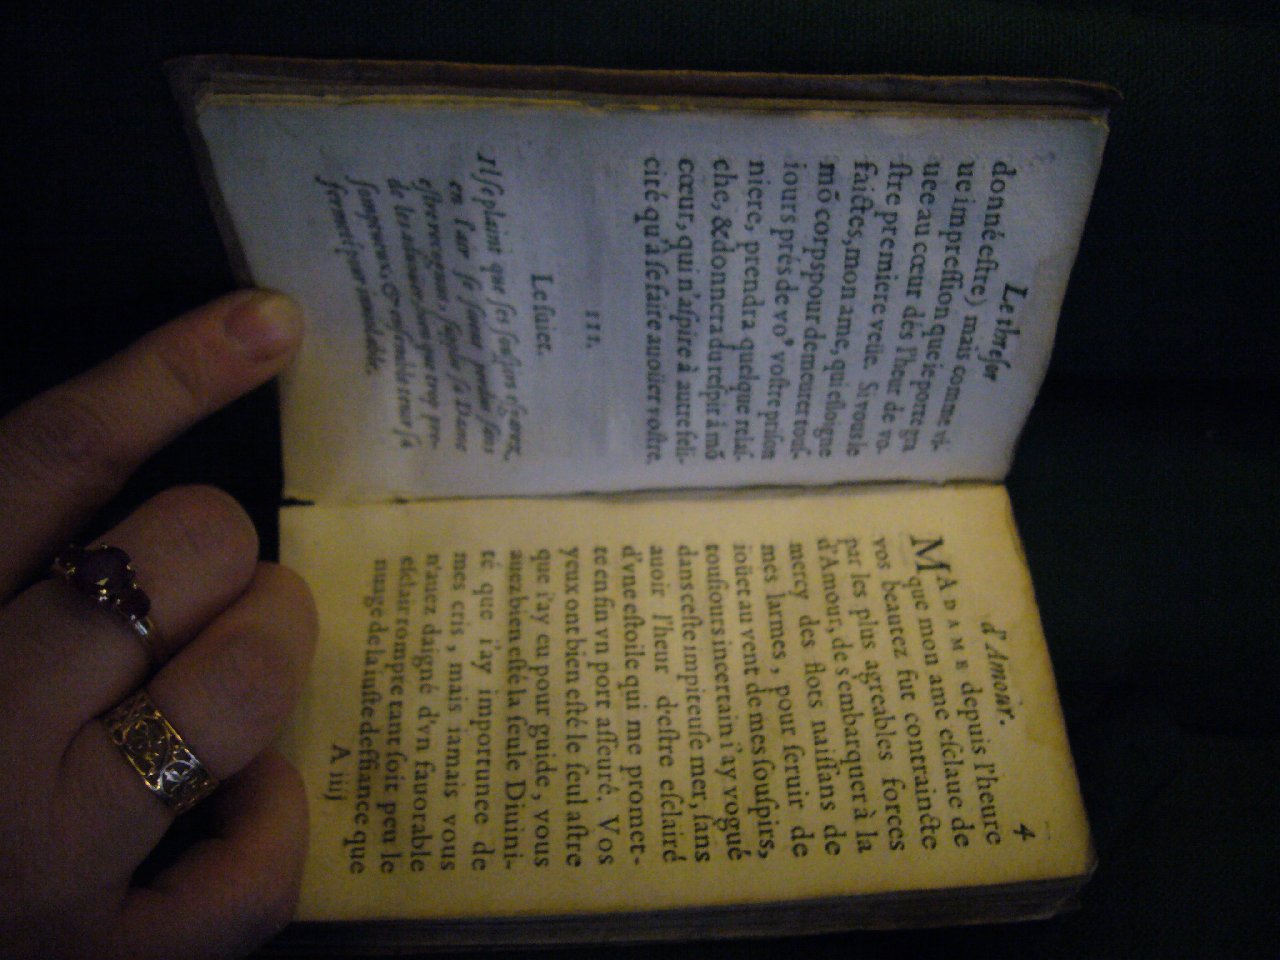 Le thresor
donné estre) mais comme vi-
ue impression que ie porte gra
uee au cœur dés l'heur de vo-
stre premiere veuë. Si vous le
faictes, mon ame, qui esloigne
mõ corps pour demeurer tous-
iours prés de voꝰ vostre prison
niere, prendra quelque relas-
che, & donnera du respir à mõ
cœur, qui n'aspire à autre feli-
cité qu'à se faire auoüer vostre.
III.
Le suiet.
Il se plaint que ses souspirs esgarez,
en l'air se sont perdus sans
estre receus, supplie sa Dame
de les
songneux, & ensemble tenir sa
fermeté pour immuable.
d'Amour. 4
MADAME depuis l'heure
que mon ame esclaue de
vos beautez fut contraincte
par les plus agreables forces
d'Amour, de s'embarquer à la
mercy des flots naissans de
mes larmes, pour seruir de
ioüet au vent de mes souspirs,
tousiours incertain i'ay vogué
dans ceste impiteuse mer, sans
auoir l'heur d'estre esclairé
d'vne estoile qui me promet-
te en fin vn port asseuré. Vos
yeux ont bien esté le seul astre
que i'ay eu pour guide, vous
auez bien esté la seule Diuini-
té que i'ay importunee de
mes cris, mais iamais vous
n'auez daigné d'vn fauorable
esclair rompre tant soit peu le
nuage de la iuste deffiance que
A iiij